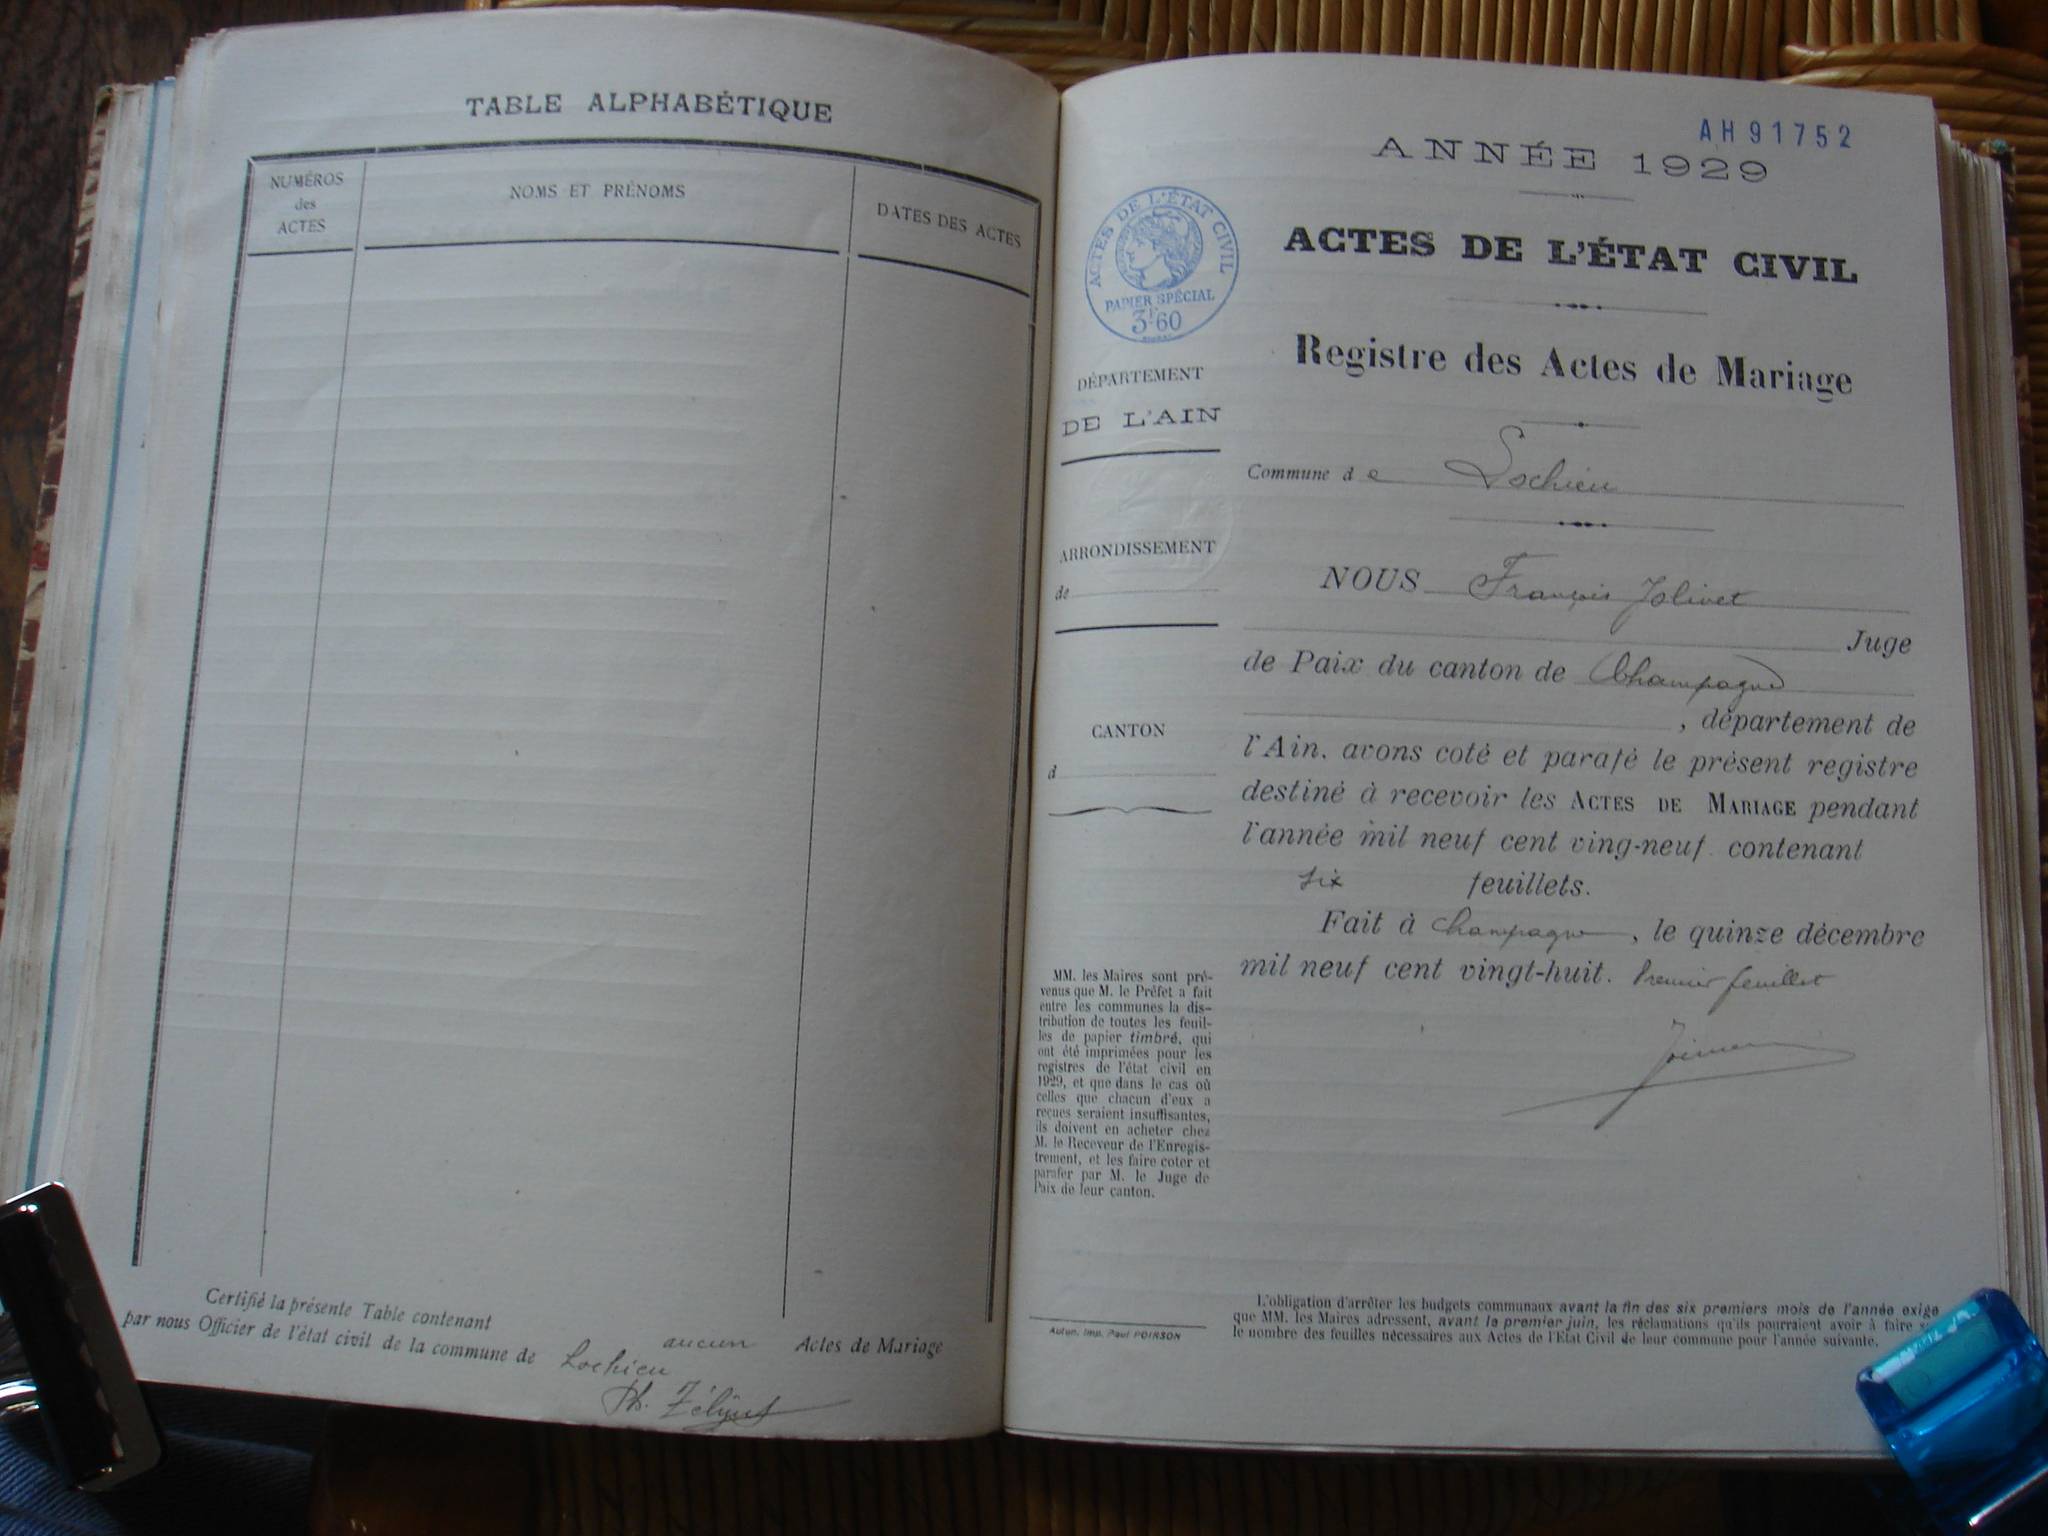 TABLE ALPHABÉTIQUE
NUMÉROS
des
ACTES
NOMS ET PRÉNOMS
DATES DES ACTES
Certifié la présente Table contenant aucun Actes de Mariage
par nous Officier de l'état civil de la commune de Lochieu
AH91752
ANNÉE 1929
ACTES DE L'ÉTAT CIVIL
PAPIER SPÉCIAL
3F60
ACTES DE L'ÉTAT CIVIL
Registre des Actes de Mariage
DÉPARTEMENT
DE L'AIN
Commune de Lochieu
ARRONDISSEMENT
de
NOUS François Jolivet
Juge
de Paix du canton de Champagne
CANTON
d
, département de
l'Ain, avons coté et parafé le présent registre
destiné à recevoir les ACTES DE MARIAGE pendant
l'année mil neuf cent ving-neuf contenant
six feuillets.
Fait à Champagne, le quinze décembre
mil neuf cent vingt-huit. Premier feuillet
MM. les Maires sont pré-
venus que M. le Préfet a fait
entre les communes la dis-
tribution de toutes les feuil-
les de papier timbré, qui
ont été imprimées pour les
registres de l'état civil en
1929, et que dans le cas où
celles que chacun d'eux a
reçues seraient insuffisantes,
ils doivent en acheter chez
M. le Receveur de l'Enregis-
trement, et les faire coter et
parafer par M. le Juge de
Paix de leur canton.
Auton. Imp. Paul POIRSON
L'obligation d'arrêter les budgets communaux avant la fin des six premiers mois de l'année exige
que MM. les Maires adressent, avant le premier juin, les réclamations qu'ils pourraient avoir à faire
le nombre des feuilles nécessaires aux Actes de l'Etat Civil de leur commune pour l'année suivante.